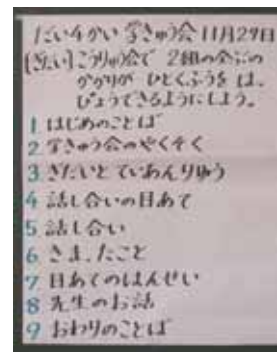 だい4かい 学きゅう会 11月29日
[ぎだい]こうりゅう会で 2組の全いんの
かかりが ひとくふうをはっ
ぴょうできるようにしよう。
1 はじめのことば
2 学きゅう会のやくそく
3 ぎだいとていあんりゆう
4 話し合いの日あて
5 話し合い
6 きまったこと
7 日あてのはんせい
8 先生のお話
9 おわりのことば